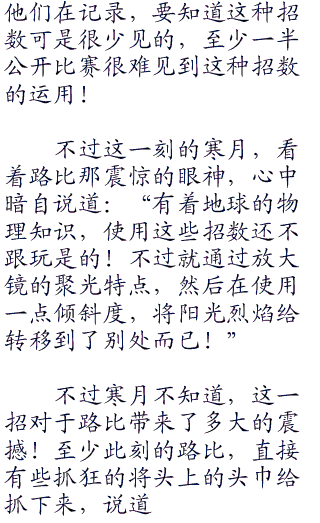 他们在记录，要知道这种招
数可是很少见的，至少一半
公开比赛很难见到这种招数
的运用！
不过这一刻的寒月，看
着路比那震惊的眼神，心中
暗自说道：“有着地球的物
理知识，使用这些招数还不
跟玩是的！不过就通过放大
镜的聚光特点，然后在使用
一点倾斜度，将阳光烈焰给
转移到了别处而已！”
不过寒月不知道，这一
招对于路比带来了多大的震
撼！至少此刻的路比，直接
有些抓狂的将头上的头巾给
抓下来，说道